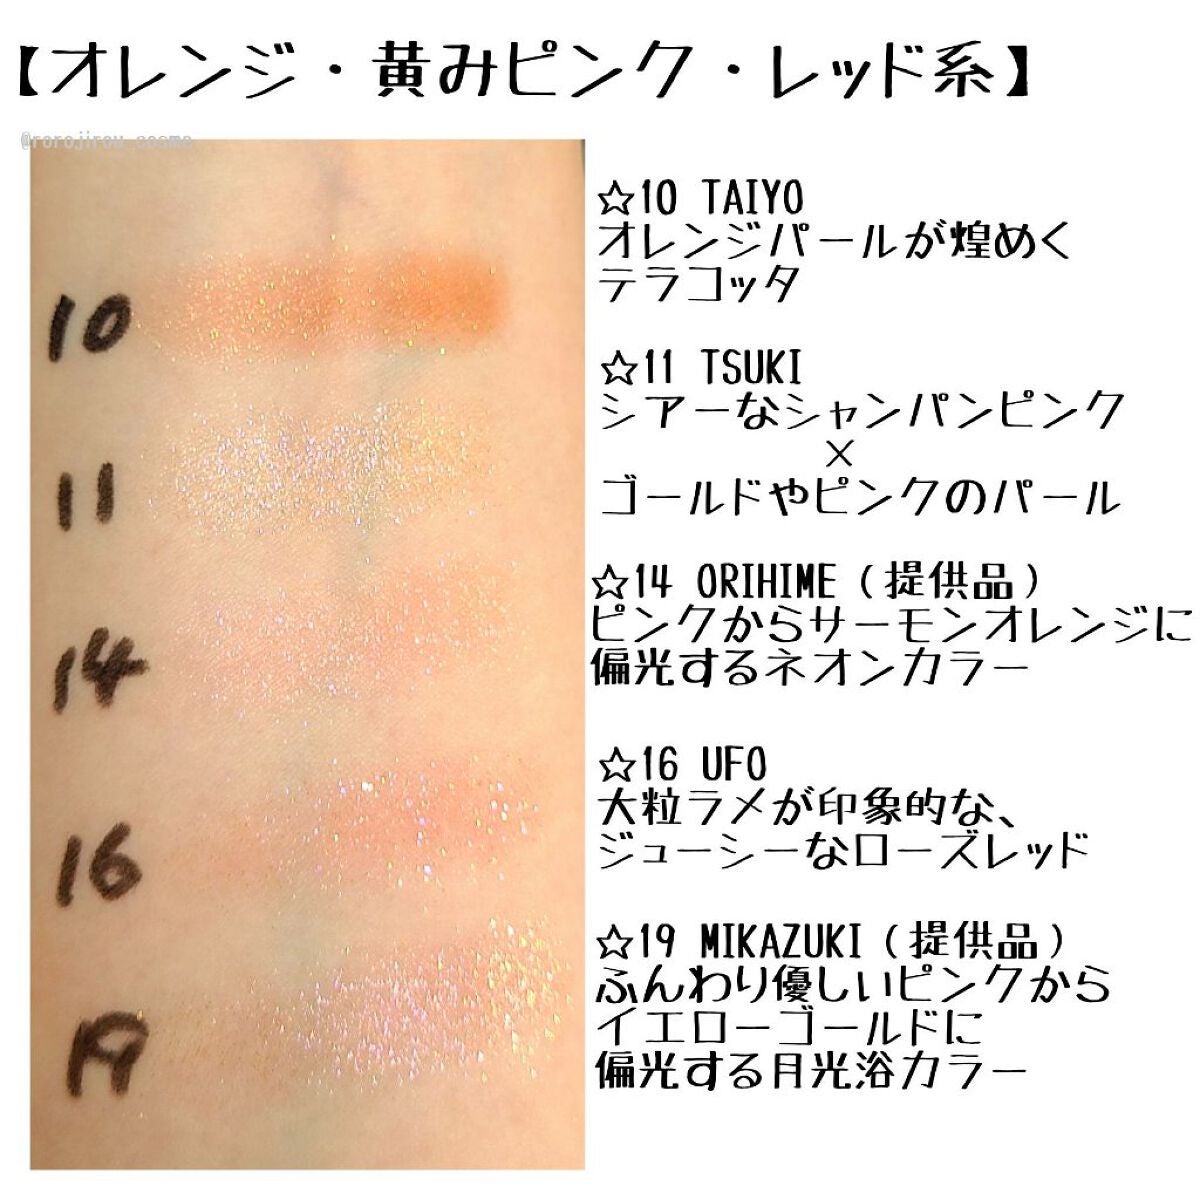 【オレンジ・黄みピンク・レッド系】
@rorojirou_cosme
☆10 TAIYO
オレンジパールが煌めく
テラコッタ
10
☆11 TSUKI
シアーなシャンパンピンク
×
ゴールドやピンクのパール
11
☆14 ORIHIME（提供品）
ピンクからサーモンオレンジに
偏光するネオンカラー
14
☆16 UFO
大粒ラメが印象的な、
ジューシーなローズレッド
16
☆19 MIKAZUKI（提供品）
ふんわり優しいピンクから
イエローゴールドに
偏光する月光浴カラー
19